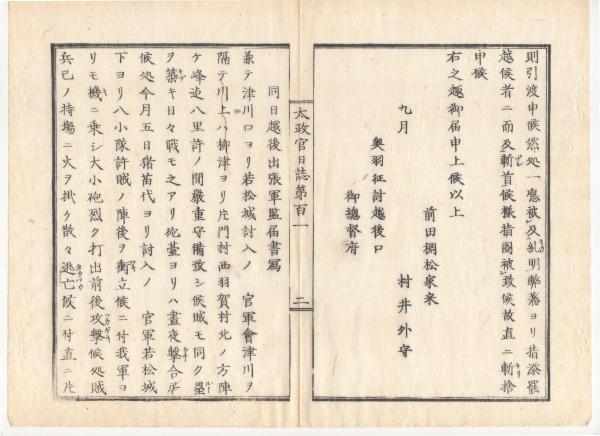 則引渡申候然処一應被及糺明弊藩ヨリ指添罷
越候者ニ而及斬首候樣指圖被致候故直ニ斬捨
申候
右之趣御届申上候以上
前田稠松家来
九月 村井外守
奥羽征討越後口
御總督府
太政官日誌第百一 二
同日越後出張軍監届書寫
兼テ津川口ヨリ若松城討入ノ 官軍會津川ヲ
隔テ川上ハ柳津ヨリ片門村西羽賀村北ノ方陣
ケ峰迄八里許ノ間嚴重守備致シ候賊モ同ク壘
ヲ築キ日々戰モ之アリ砲臺ヨリハ晝夜撃合居
候処今月五日猪苗代ヨリ討入ノ 官軍若松城
下ヨリ八小隊許賊ノ陣後ヲ衝立候ニ付我軍ヨ
リモ機ニ乘シ大小砲烈ク打出前後攻撃候処賊
兵已ノ持場ニ火ヲ掛ケ散々逃亡候ニ付直ニ片